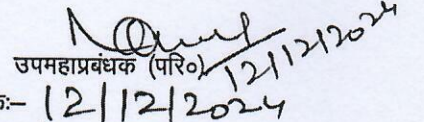 12/12/2024
उपमहाप्रबंधक (परि०)
12/12/2024